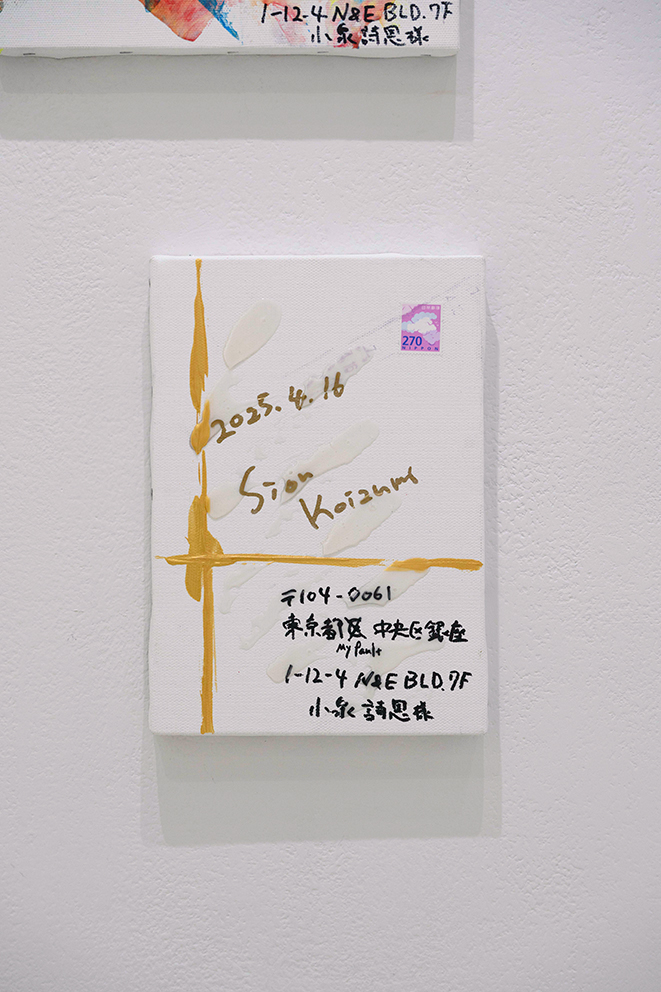 1-12-4 N&E BLD.7F
小泉詩恩様
270
NIPPON
2025.4.16
Sion
Koizumi
〒104-0061
東京都 中央区銀座
My fault
1-12-4 N&E BLD.7F
小泉詩恩様